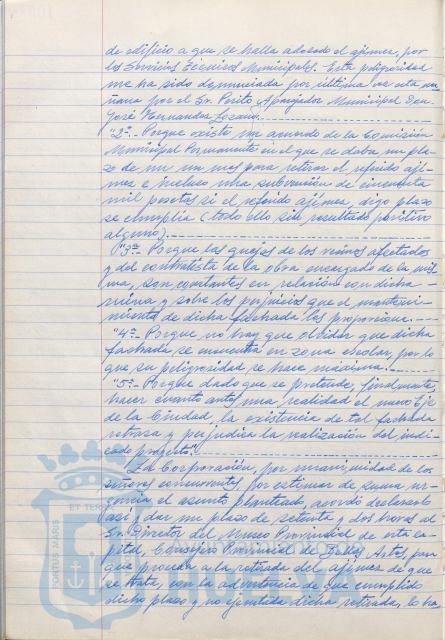 de edificio a que se halla adosado el ajimez, por
los Servicios Técnicos Municipales. Esta peligrosidad
me ha sido denunciada por última vez esta ma-
ñana por el Sr. Perito Aparejador Municipal Don
José Hernandez Lozano.
"2º.- Porque existe un acuerdo de la Comisión
Municipal Permanente en el que se daba un pla-
zo de un mes para retirar el referido aji-
mez e incluso una subvención de cincuenta
mil pesetas si el referido ajimez, digo plazo
se cumplía (todo ello sin resultado positivo
alguno).
"3º.- Porque las quejas de los vecinos afectados
y del contratista de la obra encargado de la mis-
ma, son constantes en relación con dicha
ruina y sobre los perjuicios que el manteni-
miento de dicha fachada les proporcione.
"4º.- Porque no hay que olvidar que dicha
fachada se encuentra en zona escolar, por lo
que su peligrosidad se hace máxima.
"5º.- Porque dado que se pretende finalmente,
hacer cuanto antes una realidad el nuevo Eje
de la Ciudad, la existencia de tal fachada
retrasa y perjudica la realización del indi-
cado proyecto".
La Corporación, por unanimidad de los
señores concurrentes, por estimar de suma ur-
gencia el asunto planteado, acordó declararlo
así y dar un plazo de setenta y dos horas al
Sr. Director del Museo Provincial de esta ca-
pital, Consejero Provincial de Bellas Artes, para
que proceda a la retirada del ajimez de que
se trata, con la advertencia de que cumplido
dicho plazo y no ejecutada dicha retirada, lo ha-
ET TERR
PORTUS MARIS